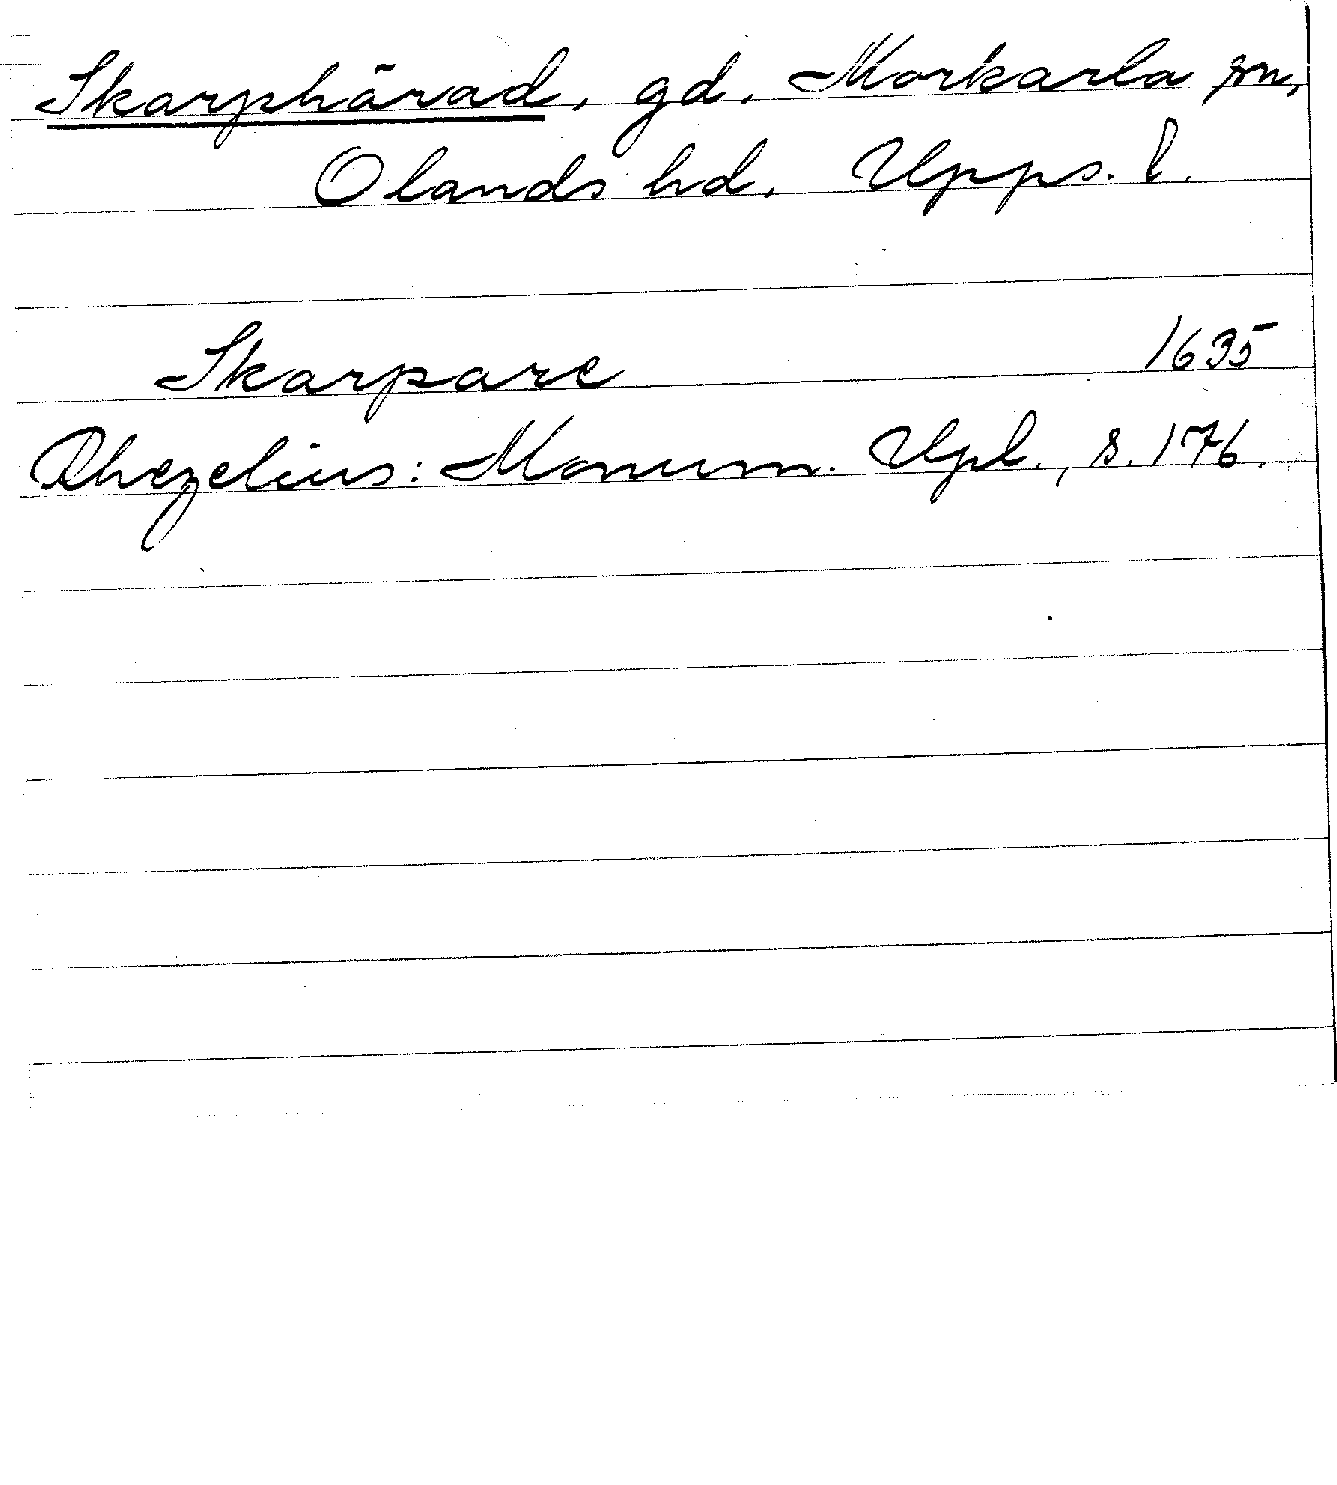 Skarphärad, gd, Morkarla sn,
Olands hd, Upps. l.
Skarpare 1635
Rhezelius: Monum. Upl., s. 176.